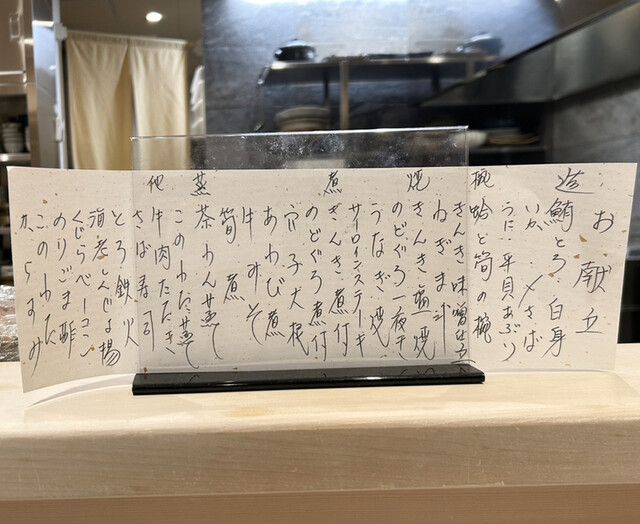 お献立
造
鮪とろ・白身
いか・〆さば
うに・平貝あぶり
椀
蛤と筍の椀
焼
きんき味噌
ねぎま斗
きんき塩焼
のどぐろ一夜干
うなぎ焼
サーロインステーキ
煮
きんき煮付
のどぐろ煮付
穴子大根
あわび煮
牛みそ
筍煮
蒸
茶わん蒸し
このわた蒸し
他
牛肉たたき
さば寿司
とろ鉄火
海老しんじょ揚
くじらベーコン
のりごま酢
このわた
からすみ